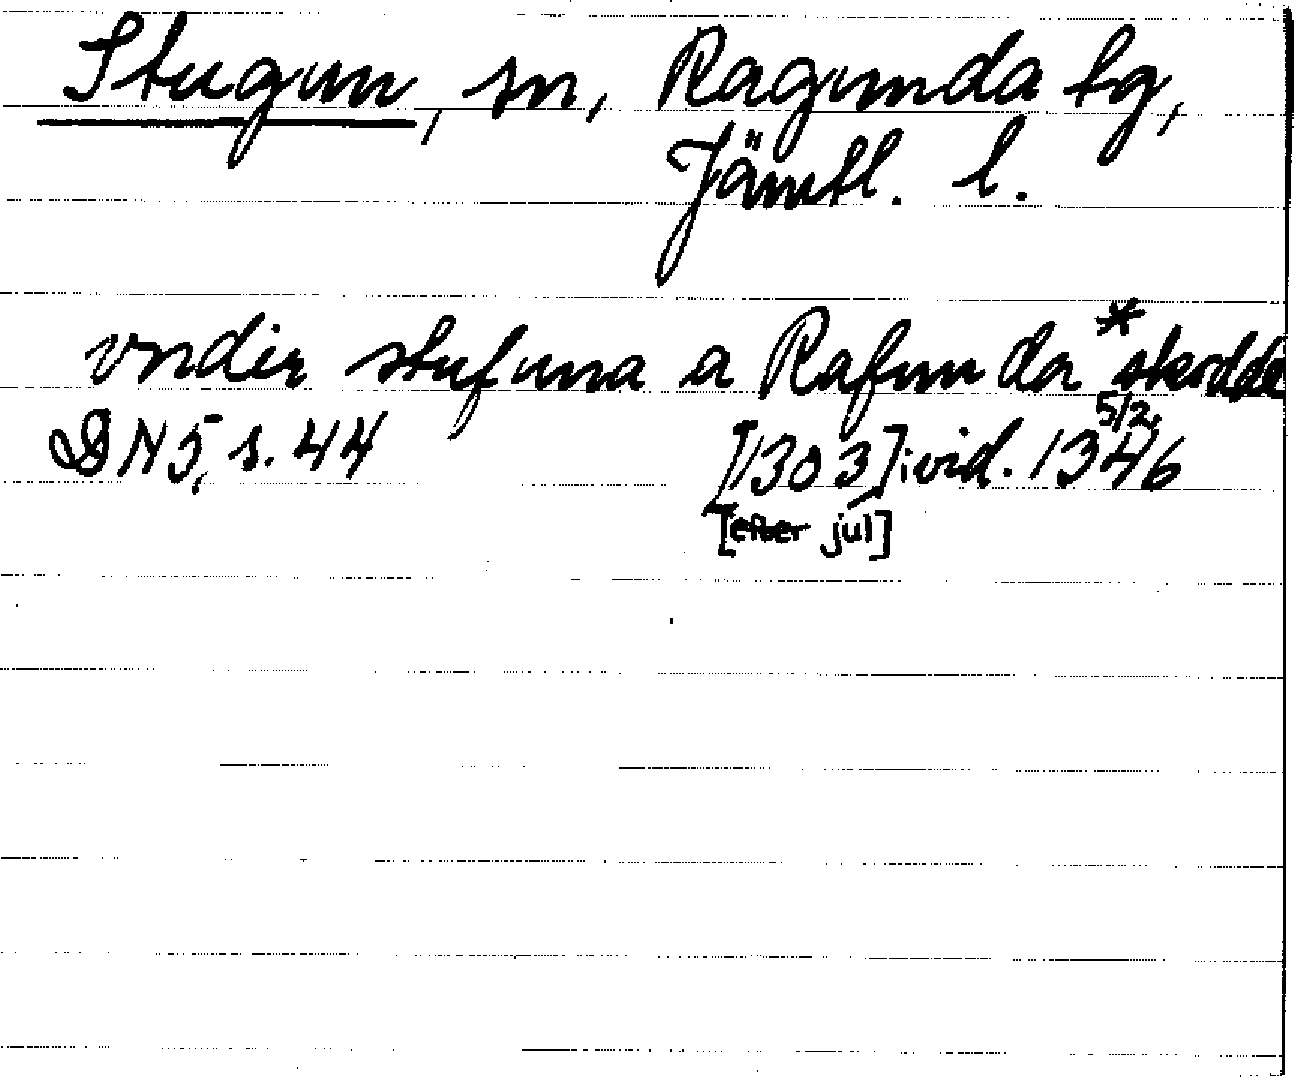 Stugun, sn, Ragunda tg,
Jämtl. l.
vndir stufuna a Rafundar *skodde
DN5, s. 44 [1303] i vid. 5/2, 1346
[efter jul]